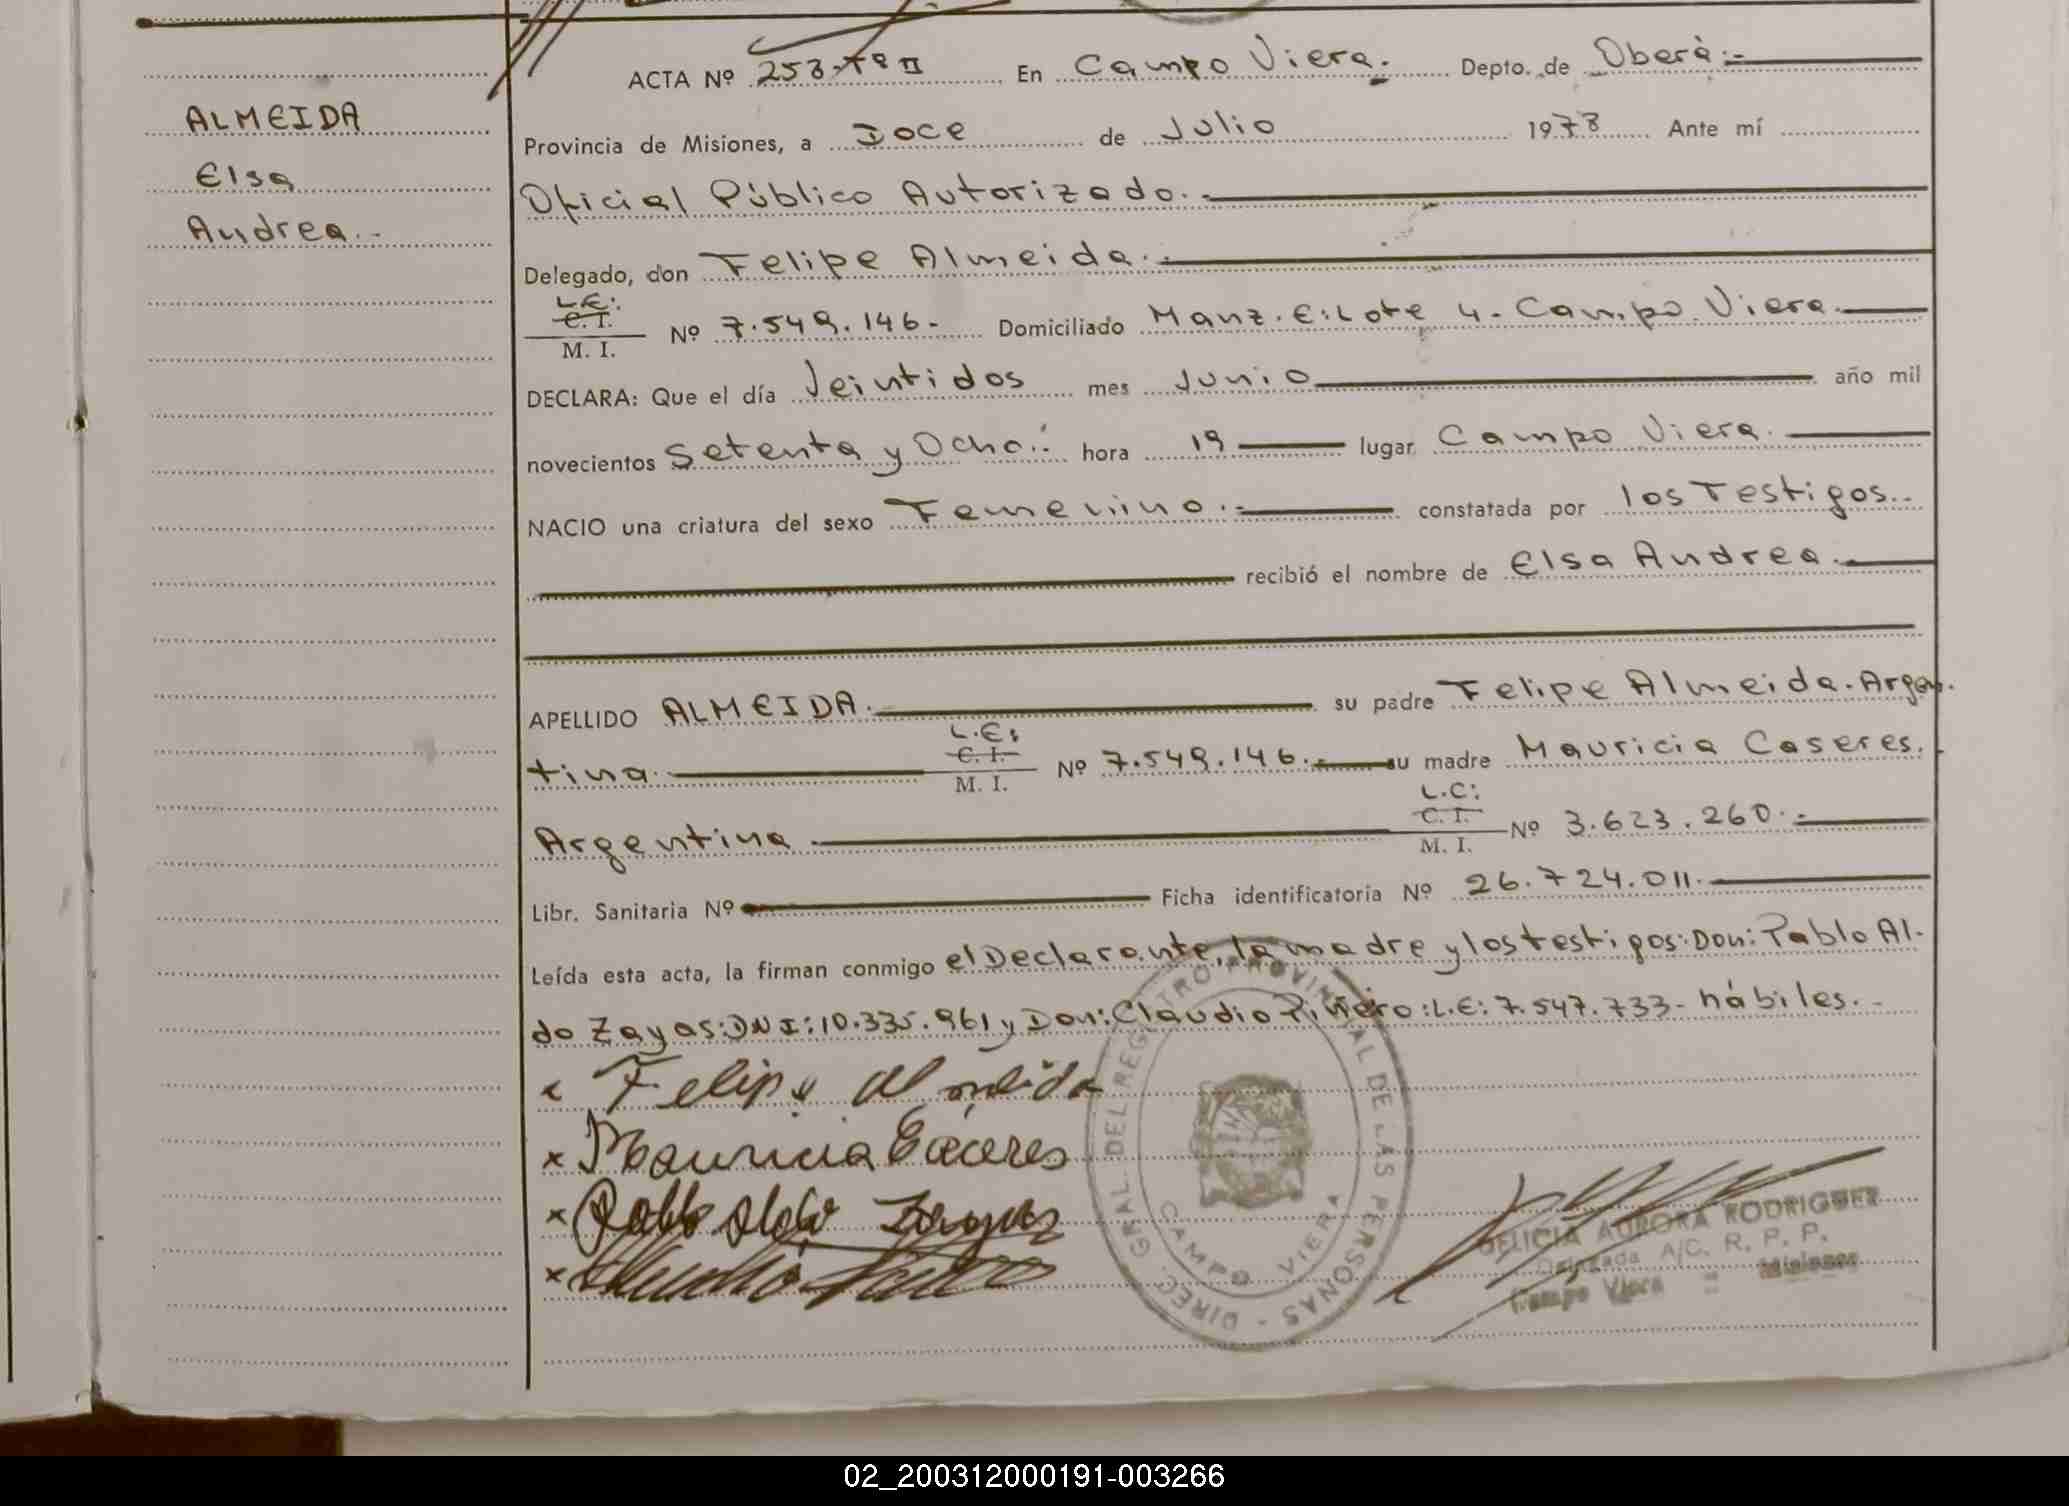 ALMEIDA
Elsa
Andrea.-
ACTA Nº 253-Tº II En Campo Viera.- Depto. de Oberá:-
Provincia de Misiones, a Doce de Julio 1978 Ante mí
Oficial Público Autorizado.-
Delegado, don Felipe Almeida.-
L.E:
C. I.
M. I.
Nº 7.549.146.- Domiciliado Manz.E:Lote 4.-Campo Viera.
DECLARA: Que el día Veintidos mes Junio año mil
novecientos Setenta y Ocho.: hora 19 lugar Campo Viera.
NACIO una criatura del sexo Femenino.- constatada por los Testigos..
recibió el nombre de Elsa Andrea.
APELLIDO ALMEIDA. su padre Felipe Almeida.Argen.
tina. L.E: C. I. M. I. Nº 7.549.146.- su madre Mauricia Caseres.
Argentina L.C: C. I. M. I. Nº 3.623.260.-
Libr. Sanitaria Nº Ficha identificatoria Nº 26.724.011.
Leída esta acta, la firman conmigo el Declarante, la madre y los testigos:Don:Pablo Al-
do Zayas:DNI:10.335.961 y Don:Claudio Piñeiro:L.E:7.547.733- hábiles.-
x Felipe Almeida
x Mauricia Caceres
x Pablo Aldo Zayas
x
DIREC. GRAL. DEL REGISTRO PROVINCIAL DE LAS PERSONAS -
CAMPO VIERA
DELICIA AURORA RODRIGUEZ
Delegada A/C. R. P. P.
Campo Viera = Misiones
02_200312000191-003266